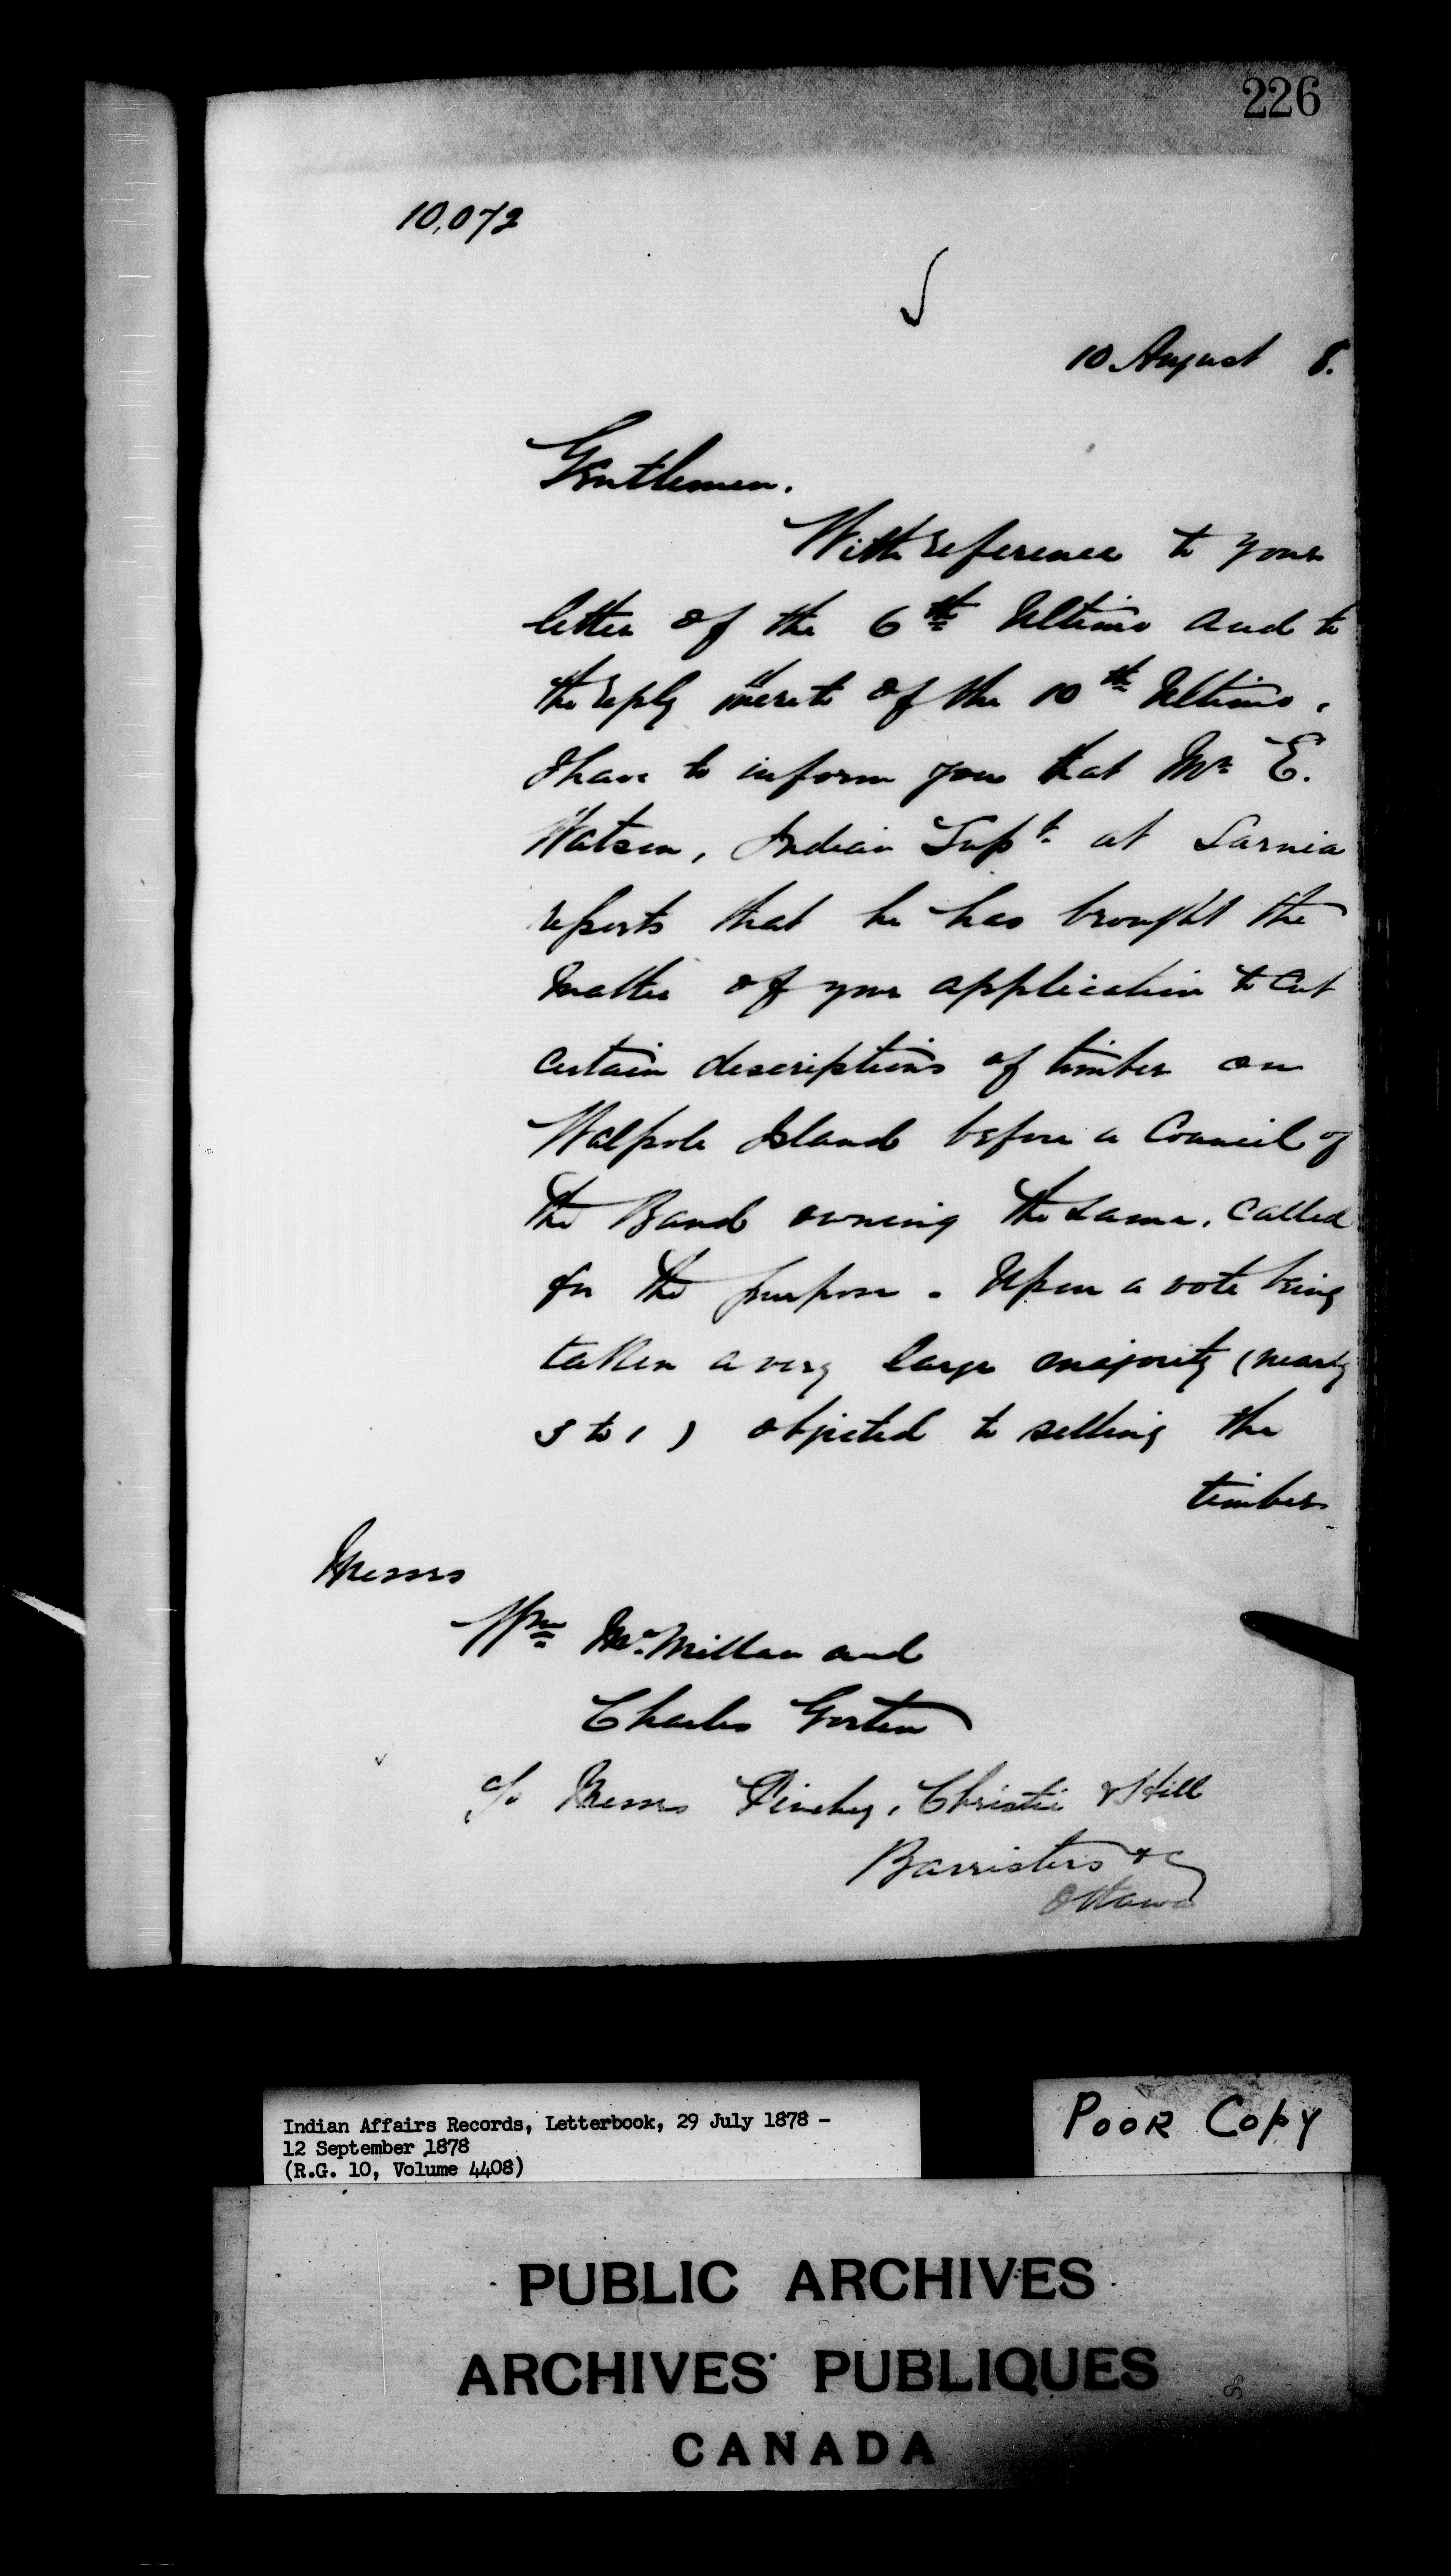 226
10,072
10 August 8.
Gentlemen.
With reference to your
letter of the 6th Ultimo and to
the reply thereto of the 10th Ultimo,
I have to inform you that Mr E.
Watson, Indian Supt. at Sarnia
reports that he has brought the
matter of your application to cut
certain descriptions of timber on
Walpole Island before a Council of
the Band owning the same, called
for the purpose. Upon a vote being
taken a very large majority (nearly
3 to 1) objected to selling the
timber.
Messrs
Wm McMillan and
Charles Gorten
c/o Messrs Pinhey, Christie & Hill
Barristers &c
Ottawa
Indian Affairs Records, Letterbook, 29 July 1878 -
12 September 1878
(R.G. 10, Volume 4408)
POOR COPY
PUBLIC ARCHIVES
ARCHIVES PUBLIQUES
CANADA